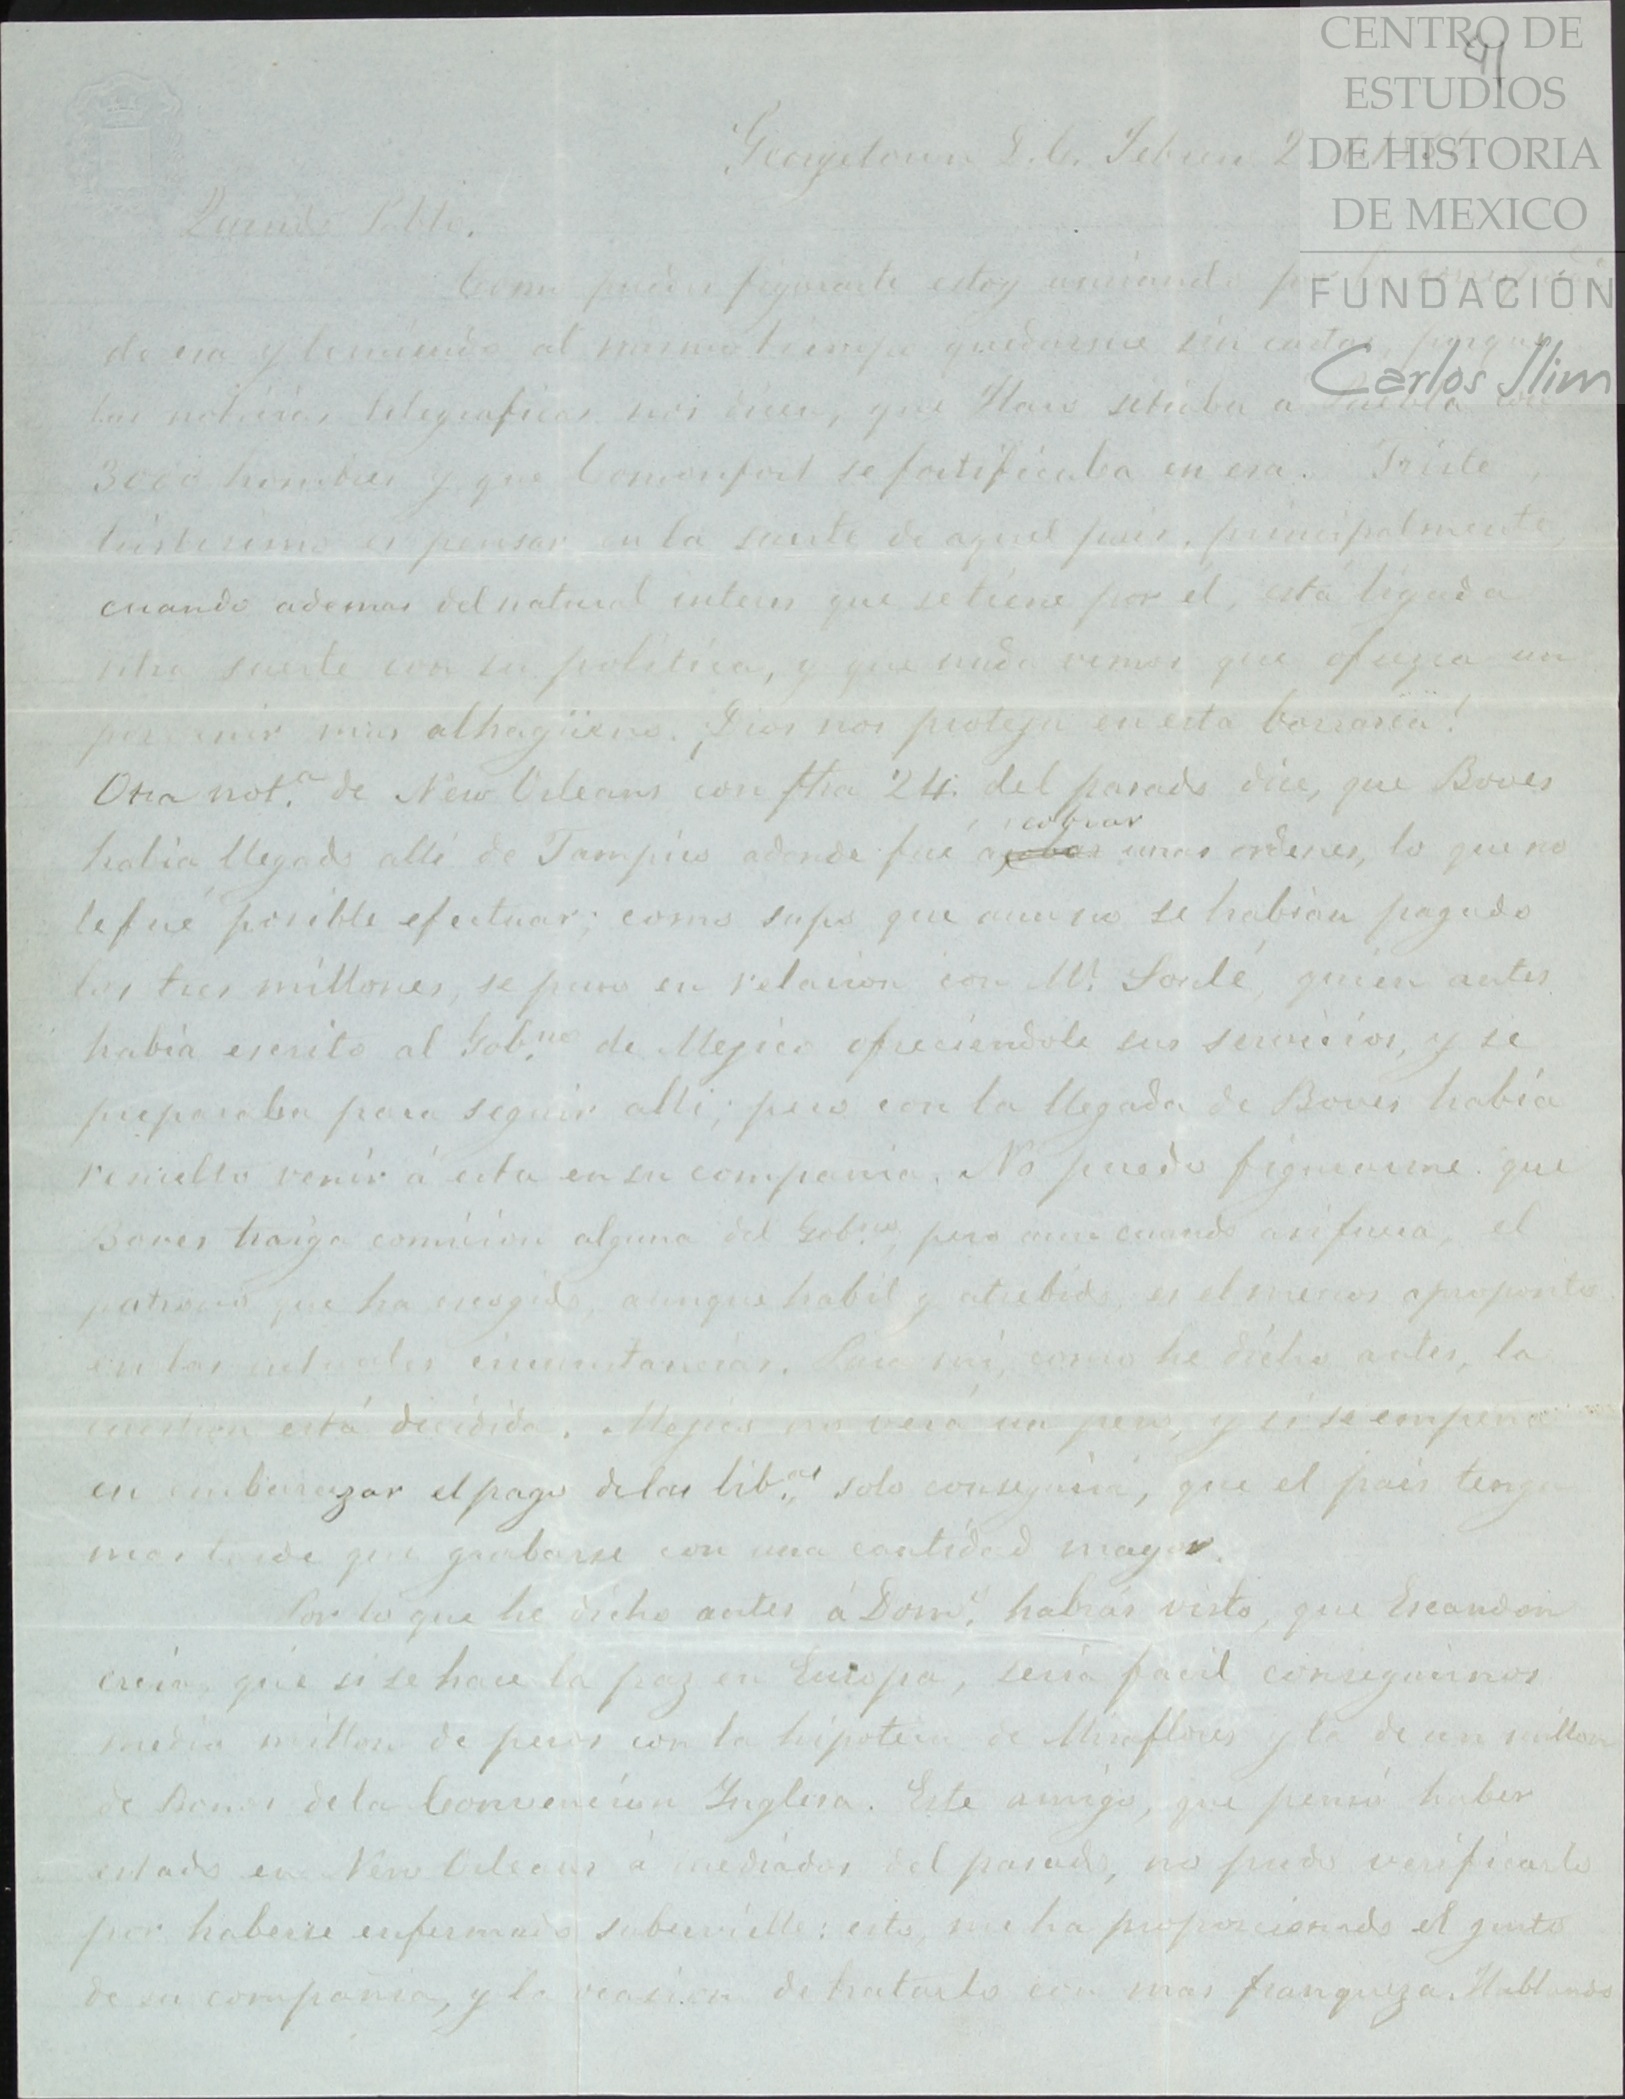 CENTRO DE
ESTUDIOS
DE HISTORIA
DE MEXICO
FUNDACIÓN
Carlos Slim
91
Georgetown D.C. Febrero 2
Querido Pablo.
Como puedes figurarte estoy ansiando por
de esa y temiendo al mismo tiempo quedarme sin cartas, porque
las noticias telegraficas nos dicen, que Haro sitiaba a Puebla con
3000 hombres y que Comonfort se fortificaba en esa. Triste,
tristisimo es pensar en la suerte de aquel pais, principalmente,
cuando ademas del natural interes que se tiene por él, está ligada
ntra suerte con su politica, y que nada vemos que ofrezca un
porvenir mas alhagüeno. ¡Dios nos proteja en esta borrasca!
Otra not.ª de New Orleans con fha 24. del pasado dice, que Boves
habia llegado allí de Tampico adonde fué a cobrar unas ordenes, lo que no
le fué posible efectuar; como supo que aun no se habian pagado
los tres millones, se puso en relacion con Mr. Soulé, quien antes
habia escrito al Gob.no de Mejico ofreciendole sus servicios, y se
preparaba para seguir alli; pero con la llegada de Boves habia
resuelto venir á esta en su compania. No puedo figurarme que
Boves traiga comision alguna del Gob.no, pero aun cuando asi fuera, el
patrono que ha escogido, aunque habil y atrebido, es el menos aproposito
en las actuales circunstancias. Para mi, como he dicho antes, la
cuestion está decidida. Mejico no verá un peso, y si se empena
en embarazar el pago de las lib.as solo conseguirá, que el pais tenga
mas tarde que grabarse con una cantidad mayor.
Por lo que he dicho antes á Dom.º habrás visto, que Escandon
creia que si se hace la paz en Europa, seria facil conseguirnos
medio millon de pesos con la hipoteca de Miraflores y la de un millon
de Bonos de la Convencion Inglesa. Este amigo, que pensó haber
estado en New Orleans á mediados del pasado, no pudo verificarlo
por haberse enfermado Subervielle: esto, me ha proporcionado el gusto
de su compania, y la ocasion de tratarlo con mas franqueza. Hablando